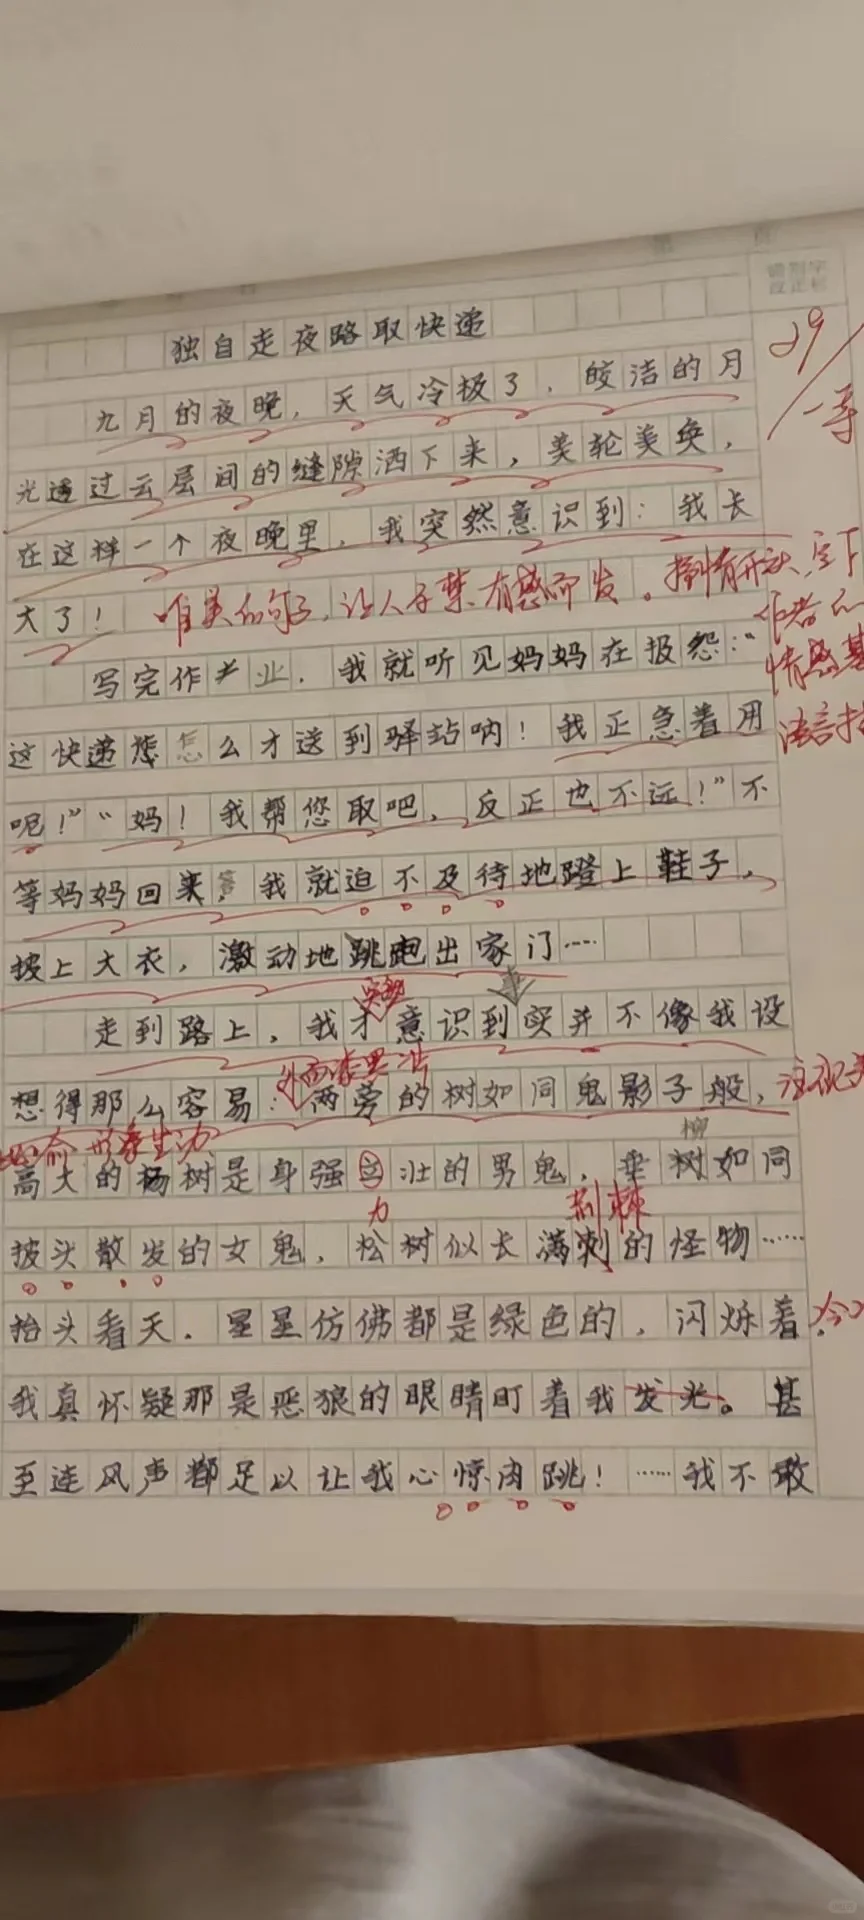 独自走夜路取快递
29
一等
九月的夜晚，天气冷极了，皎洁的月
光透过云层间的缝隙洒下来，美轮美奂，
在这样一个夜晚里，我突然意识到：我长
大了！
唯美的句子，让人不禁有感而发。
写完作业，我就听见妈妈在报怨：“
这快递怎么才送到驿站呐！我正急着用
呢！”“妈！我帮您取吧，反正也不远！”不
等妈妈回来，我就迫不及待地蹬上鞋子，
披上大衣，激动地跑出家门……
走到路上，我才意识到事实并不像我设
外面漆黑一片
想得那么容易：两旁的树如同鬼影子般，
比喻形象生动
柳
高大的杨树是身强立壮的男鬼，垂树如同
力
荆棘
披头散发的女鬼，松树似长满刺的怪物……
抬头看天，星星仿佛都是绿色的，闪烁着
我真怀疑那是恶狼的眼睛盯着我发光。甚
至连风声都足以让我心惊肉跳！……我不敢